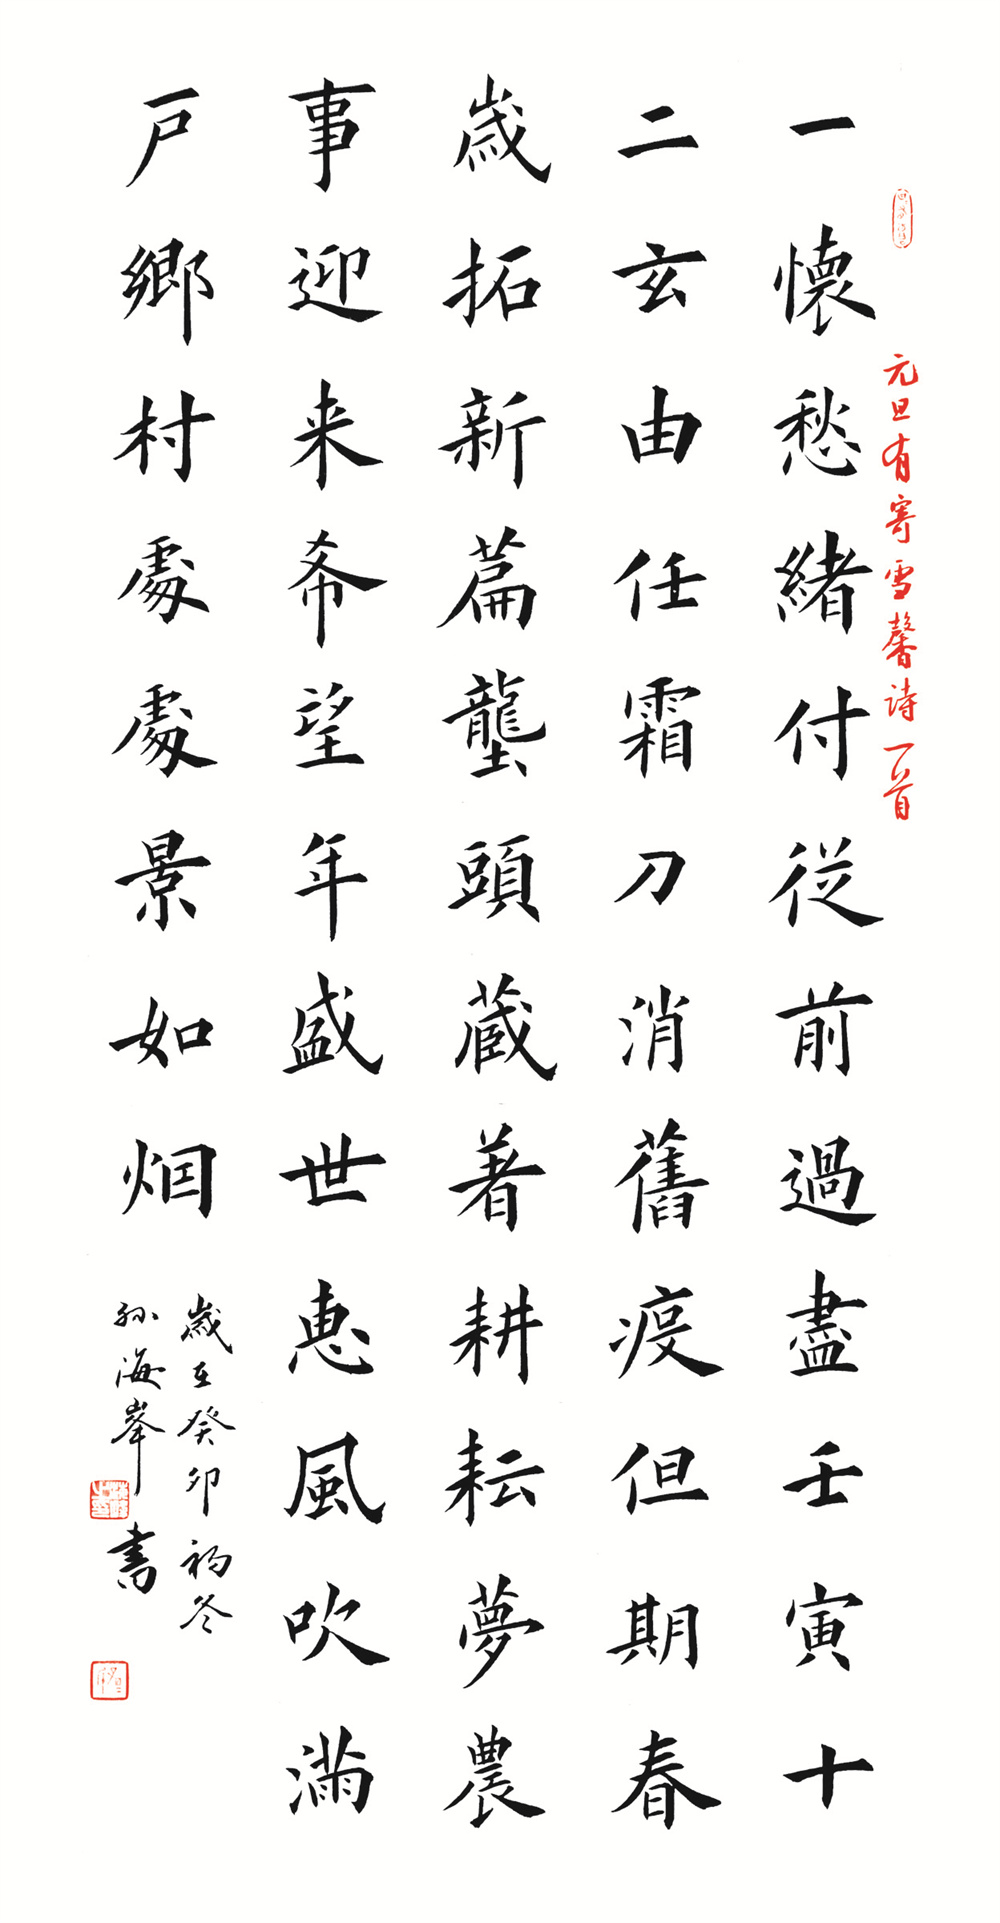 元旦有寄雪馨诗一首
一懷愁緒付從前過盡壬寅十
二玄由任霜刀消舊疫但期春
歲拓新篇龔頭蔵著耕耘夢農
事迎来希望年盛世惠風吹滿
戸鄉村處處景如烟
歲在癸卯初冬
孙海峯書